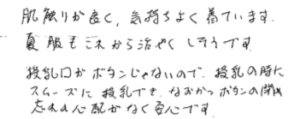 肌触りが良く、気持ちよく着ています。
夏服もこれから活やくしそうです
授乳口がボタンじゃないので、授乳の時に
スムーズに授乳でき、なおかつボタンの閉め
忘れの心配がなく安心です。